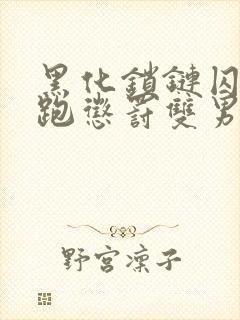 黑化鎖鏈囚
跑懲罰雙男
野宮凜子